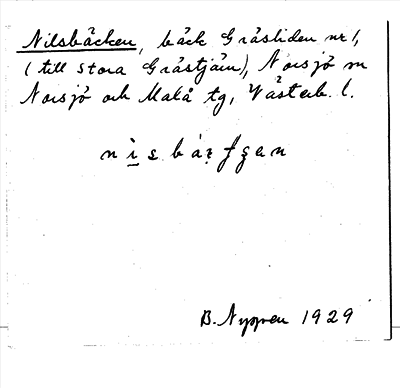 Nilsbäcken, bäck Gråsliden nr 1,
(till Stora Gråstjärn), Norsjö sn
Norsjö och Malå tg, Västerb. l.
B. Nyman 1929